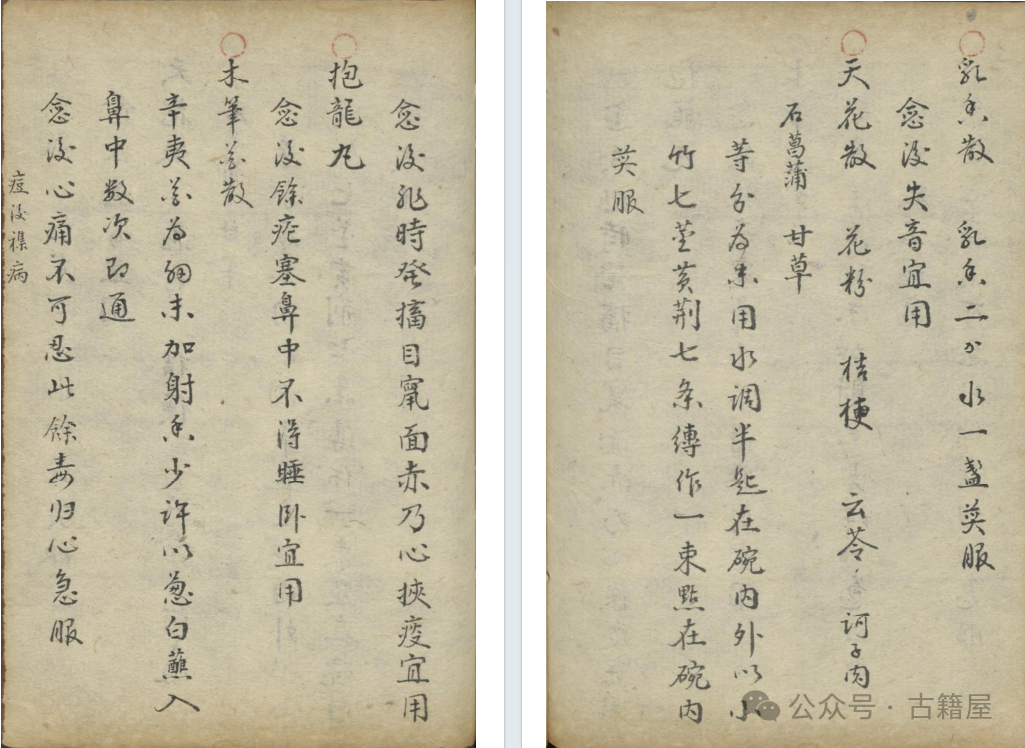 乳香散　乳香二分　水一盞煎服
愈後失音宜用
天花散　花粉　桔梗　云苓　訶子肉
石菖蒲　甘草
等分為末用水調半匙在碗内外以小
竹七莖黄荆七条縛作一束點在碗内
煎服
愈後非時發搐目竄面赤乃心挾疫宜用
抱龍丸
愈後餘疮塞鼻中不得睡卧宜用
木筆花散
辛夷花為細末加射香少許以葱白蘸入
鼻中数次即通
愈後心痛不可忍此餘毒归心急服
痘後襍病
公众号·古籍屋